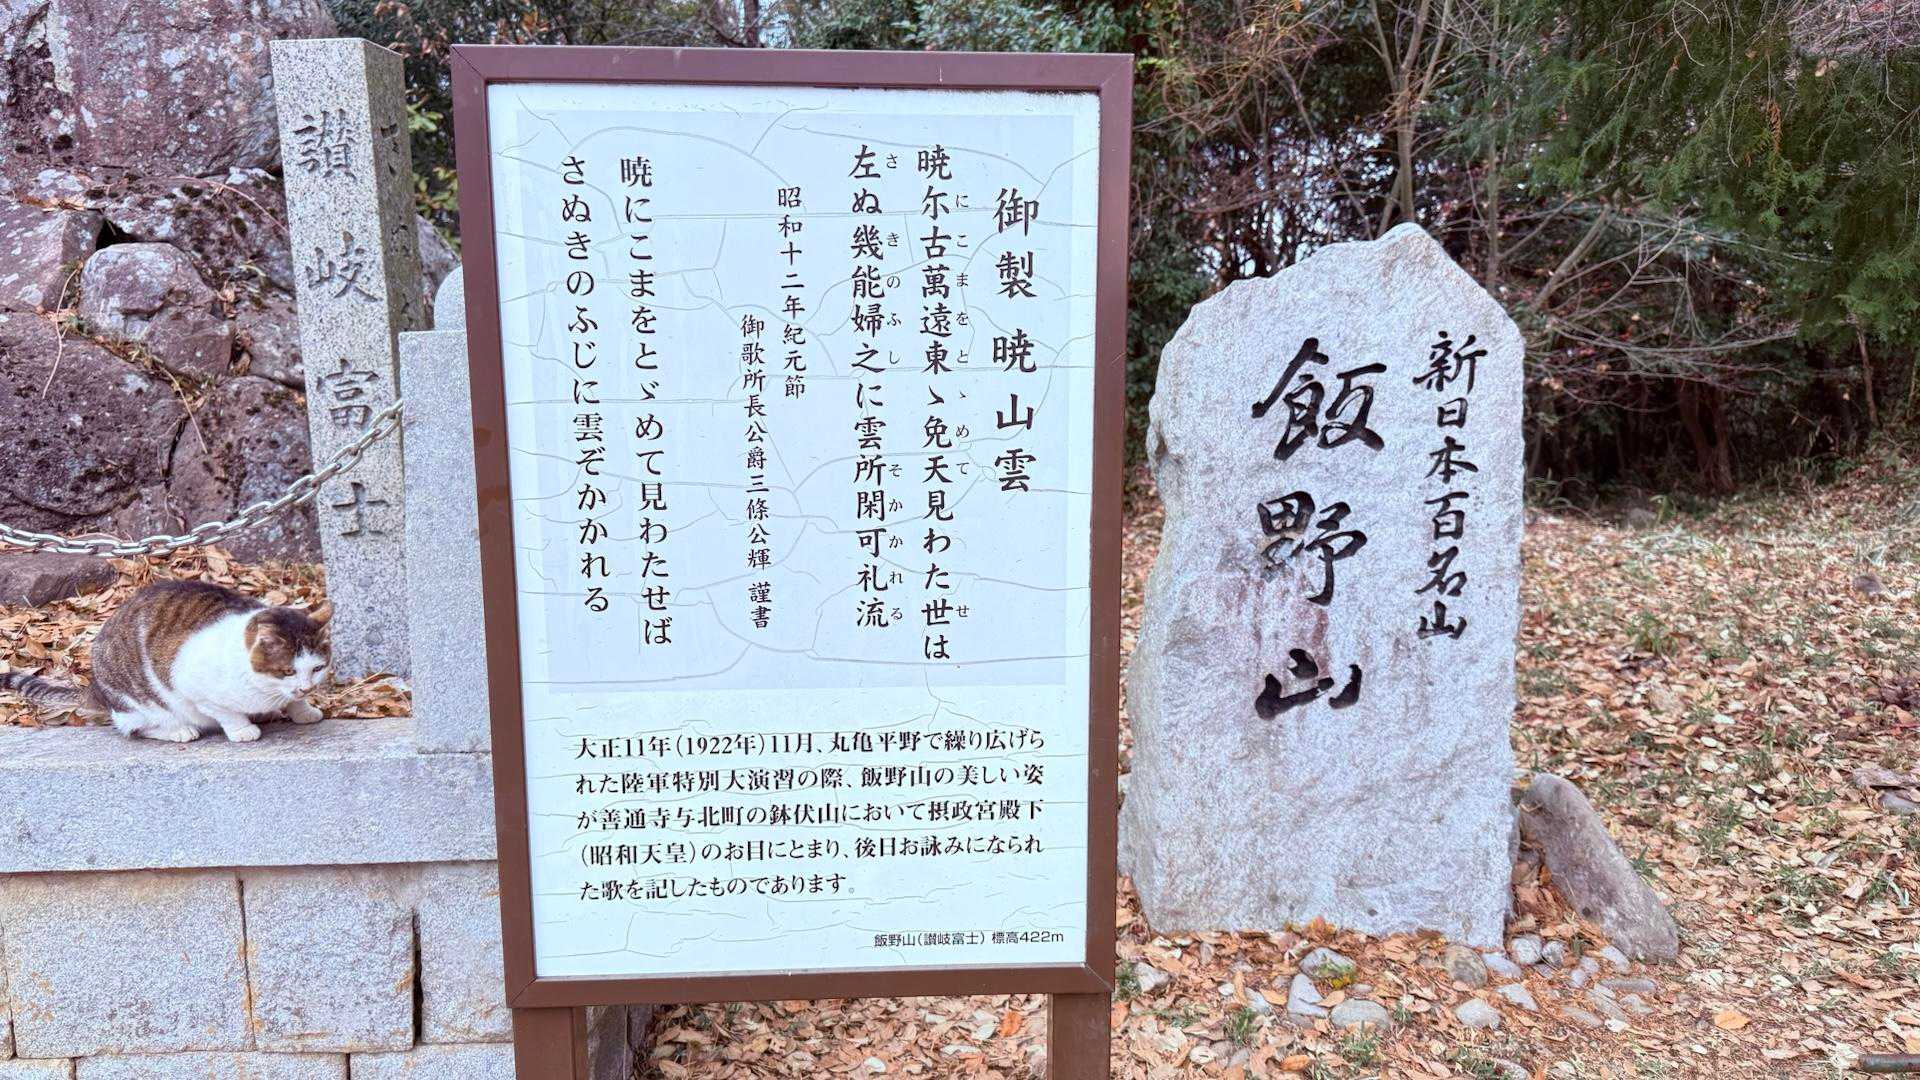 讃岐富士
御製 暁山雲
暁尓古萬遠東ゝ免天見わた世は
にこまをとゝめてせ
左ぬ幾能婦之に雲所閑可礼流
さきのふしそかかれる
昭和十二年紀元節
御歌所長公爵三條公輝 謹書
暁にこまをとゞめて見わたせば
さぬきのふじに雲ぞかかれる
大正11年(1922年)11月、丸亀平野で繰り広げら
れた陸軍特別大演習の際、飯野山の美しい姿
が善通寺与北町の鉢伏山において摂政宮殿下
(昭和天皇)のお目にとまり、後日お詠みになられ
た歌を記したものであります。
飯野山(讃岐富士) 標高422m
新日本百名山
飯野山